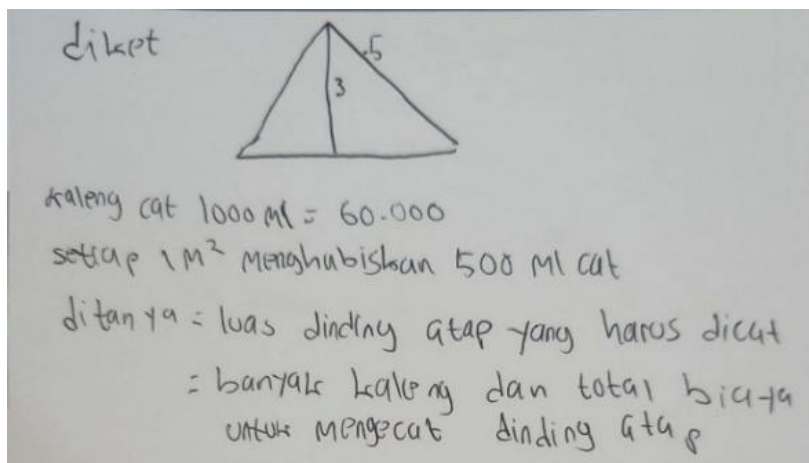 diket
5
3
kaleng cat 1000 Ml = 60.000
setiap 1 M² Menghabiskan 500 Ml cat
ditanya = luas dinding atap yang harus dicat
= banyak kaleng dan total biaya
untuk mengecat dinding atap